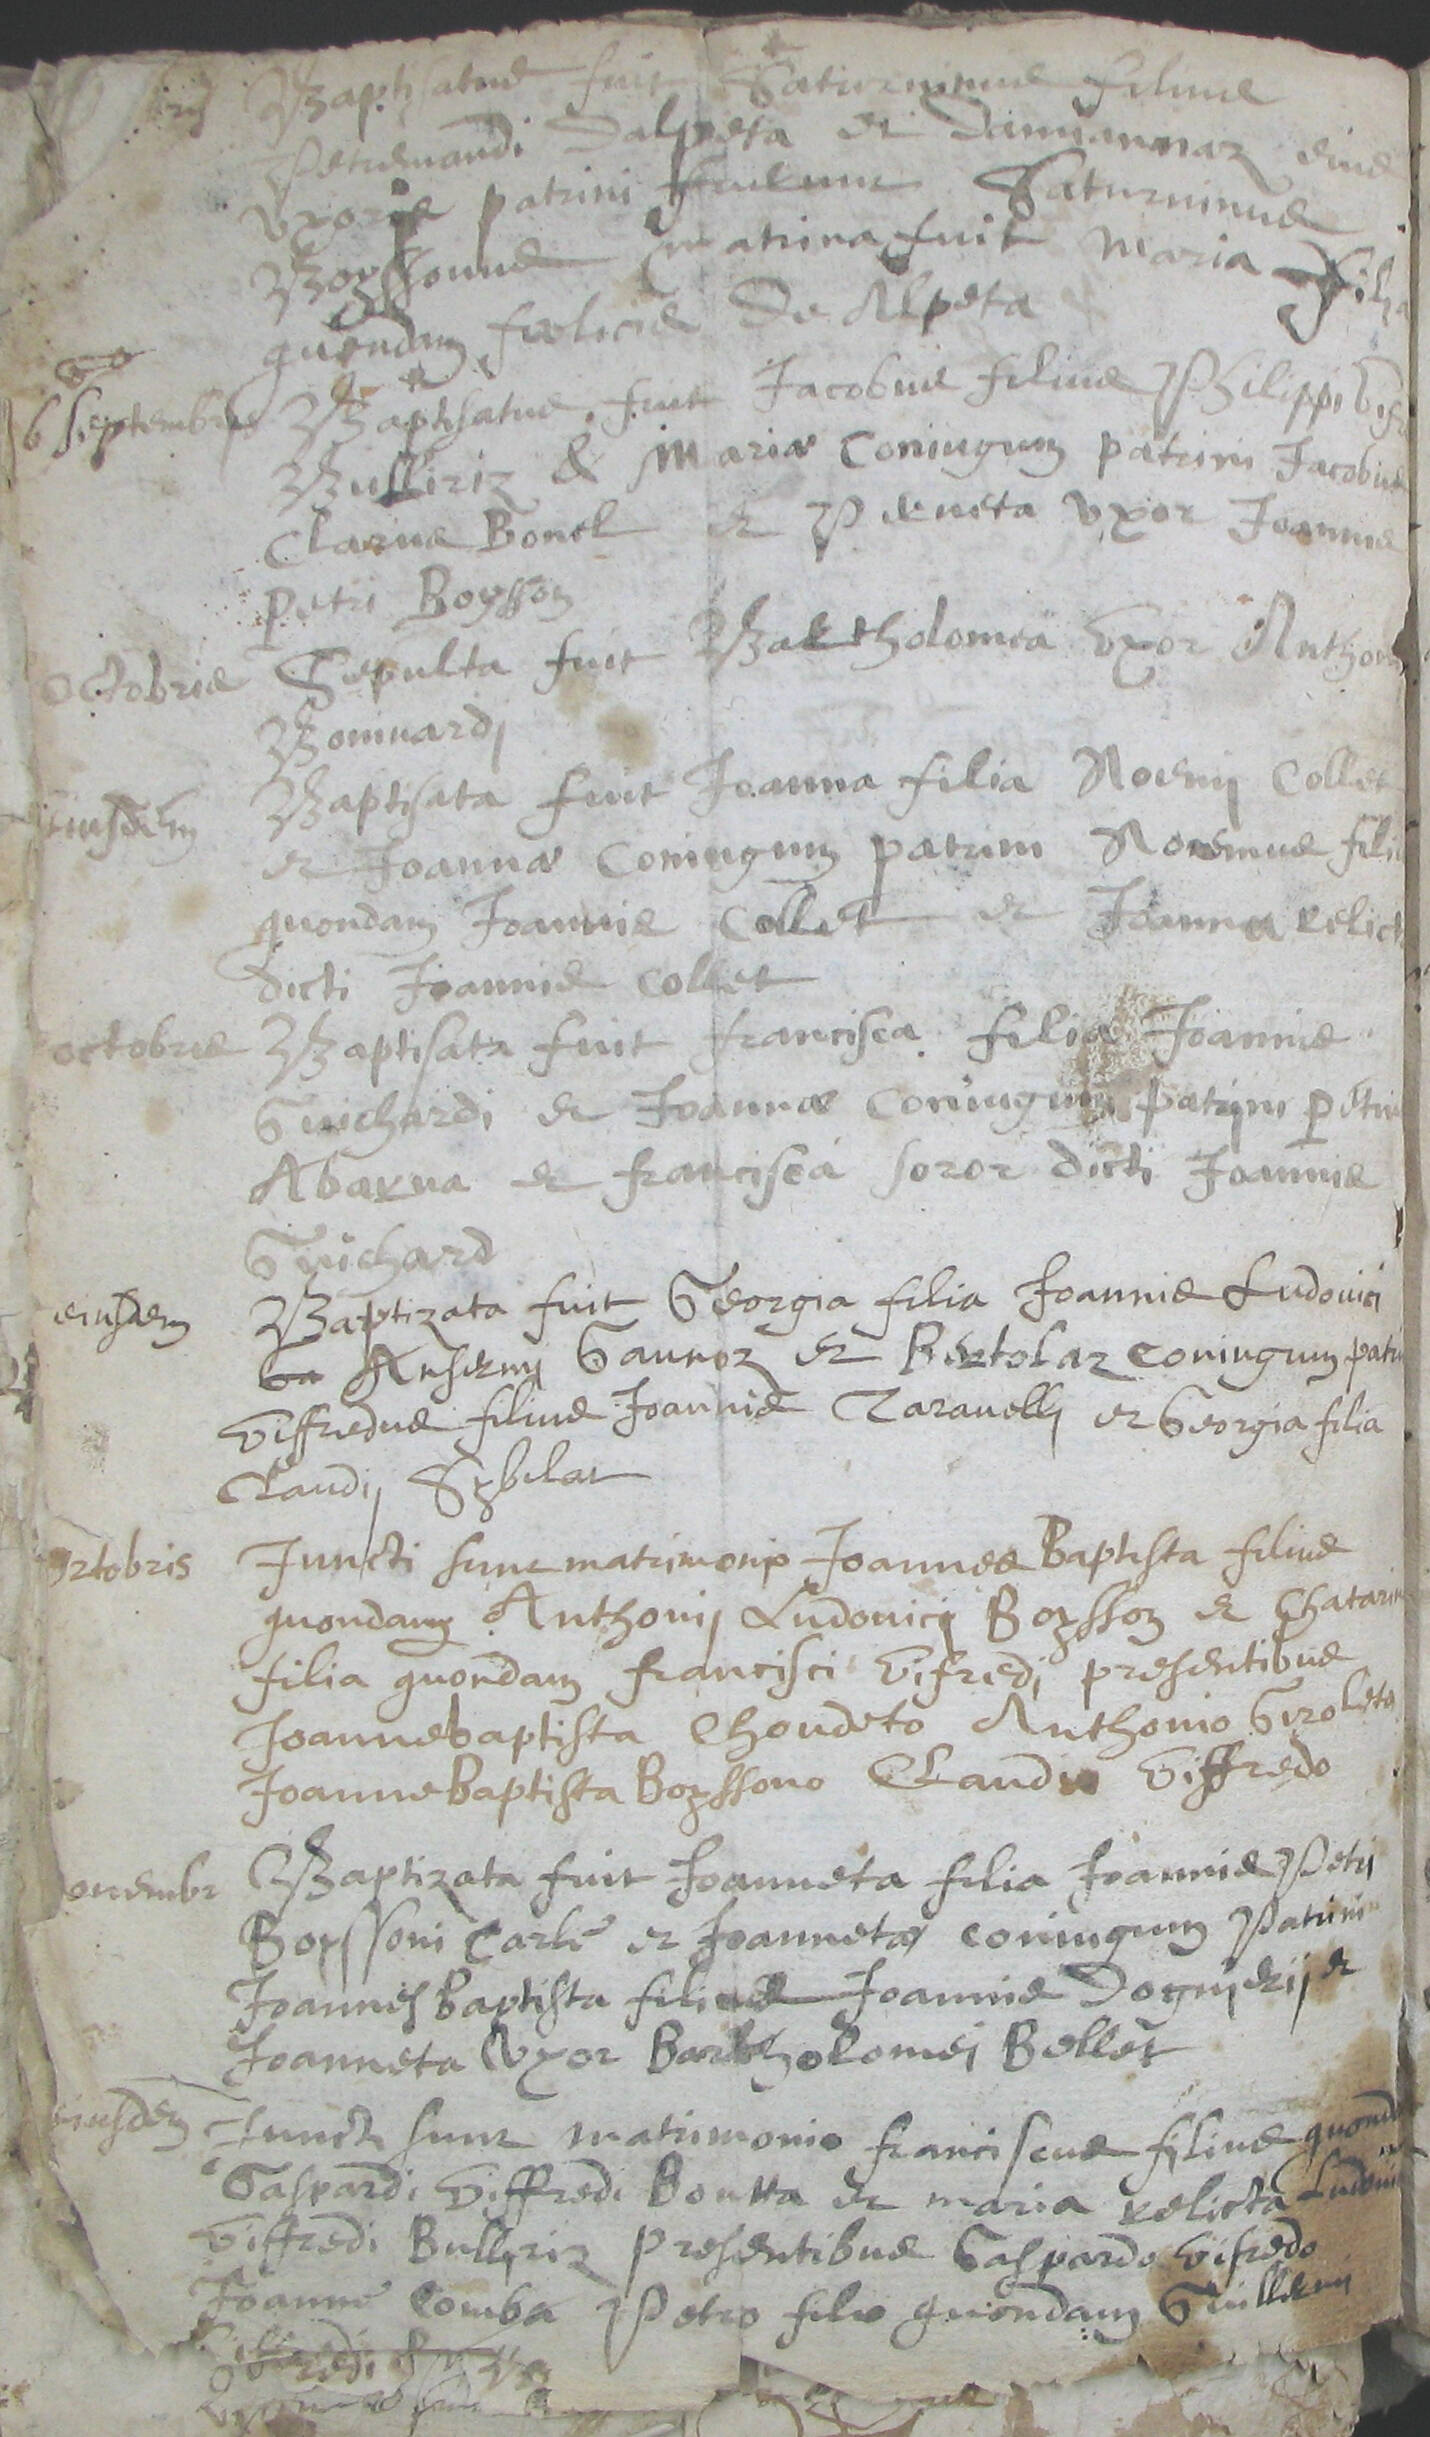 Baptisatus fuit Saturninus filius
Petremandi Dalpeta et Damiannaz eius
uxoris patrini fuerunt Saturninus
Boyssonus matrina fuit Maria filia
quondam foelicis De Alpeta
6 septembris Baptisatus fuit Jacobus filius Philippi Vifr
Bulliriz & Mariæ Coniugum patrini Jacobus
Clarus Bonel et Peneta uxor Joannis
Petri Boysson
octobris Sepulta fuit Bartholomea uxor Anthon
Boniuardj
eiusdem Baptisata fuit Joanna filia Noemij Collet
et Joannæ Coniugum patrini Noemus fili
quondam Joannis Collet et Joanna relict
dicti Joannis Collet
octobris Baptisata fuit francisca filia Joannis
Guichardi et Joannæ Coniugum patrini petrus
Abarna et francisca soror dicti Joannis
Guichard
eiusdem Baptizata fuit Georgia filia Joannis Ludouici
Anselmj Gaunoz et Bertolaz coniugum patri
Viffredus filius Joannis Taranellj et Georgia filia
Claudij Sybelat
octobris Juncti sunt matrimonio Joannes Baptista filius
quondam Anthonij Ludouicj Boysson et Chatarin
filia quondam francisci Vifredj presentibus
Joannebaptista Choudeto Anthonio Giroleto
JoanneBaptista Boyssono Claudio Viffredo
ouembr Baptizata fuit Joanneta filia Joannis Petri
Boyssoni Carle et Joannetæ coniugum Patrini
Joannes Baptista filius Joannis Dognyerij et
Joanneta Uxor Bartholomej Bellet
eiusdem Juncti sunt matrimonio franciscus filius quond
Gaspardi Viffredi Boutta et maria relicta Ludoui
Viffredi Bullyriz Presentibus Gaspardo Vifredo
Joanne Comba Petro filio quondam Guillermj
Viffredi